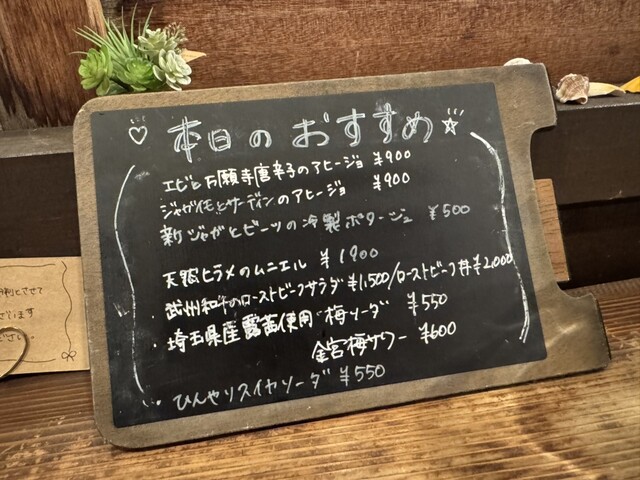 本日のおすすめ
エビと万願寺唐辛子のアヒージョ ¥900
ジャガイモとサーディンのアヒージョ ¥900
新ジャガとビーツの冷製ポタージュ ¥500
天然ヒラメのムニエル ¥1900
・武州和牛のローストビーフサラダ ¥1,500/ローストビーフ丼 ¥2,000
・埼玉県産露茜使用 梅ソーダ ¥550
金宮梅サワー ¥600
・ひんやりスイカソーダ ¥550
させて
ざいます
ださい